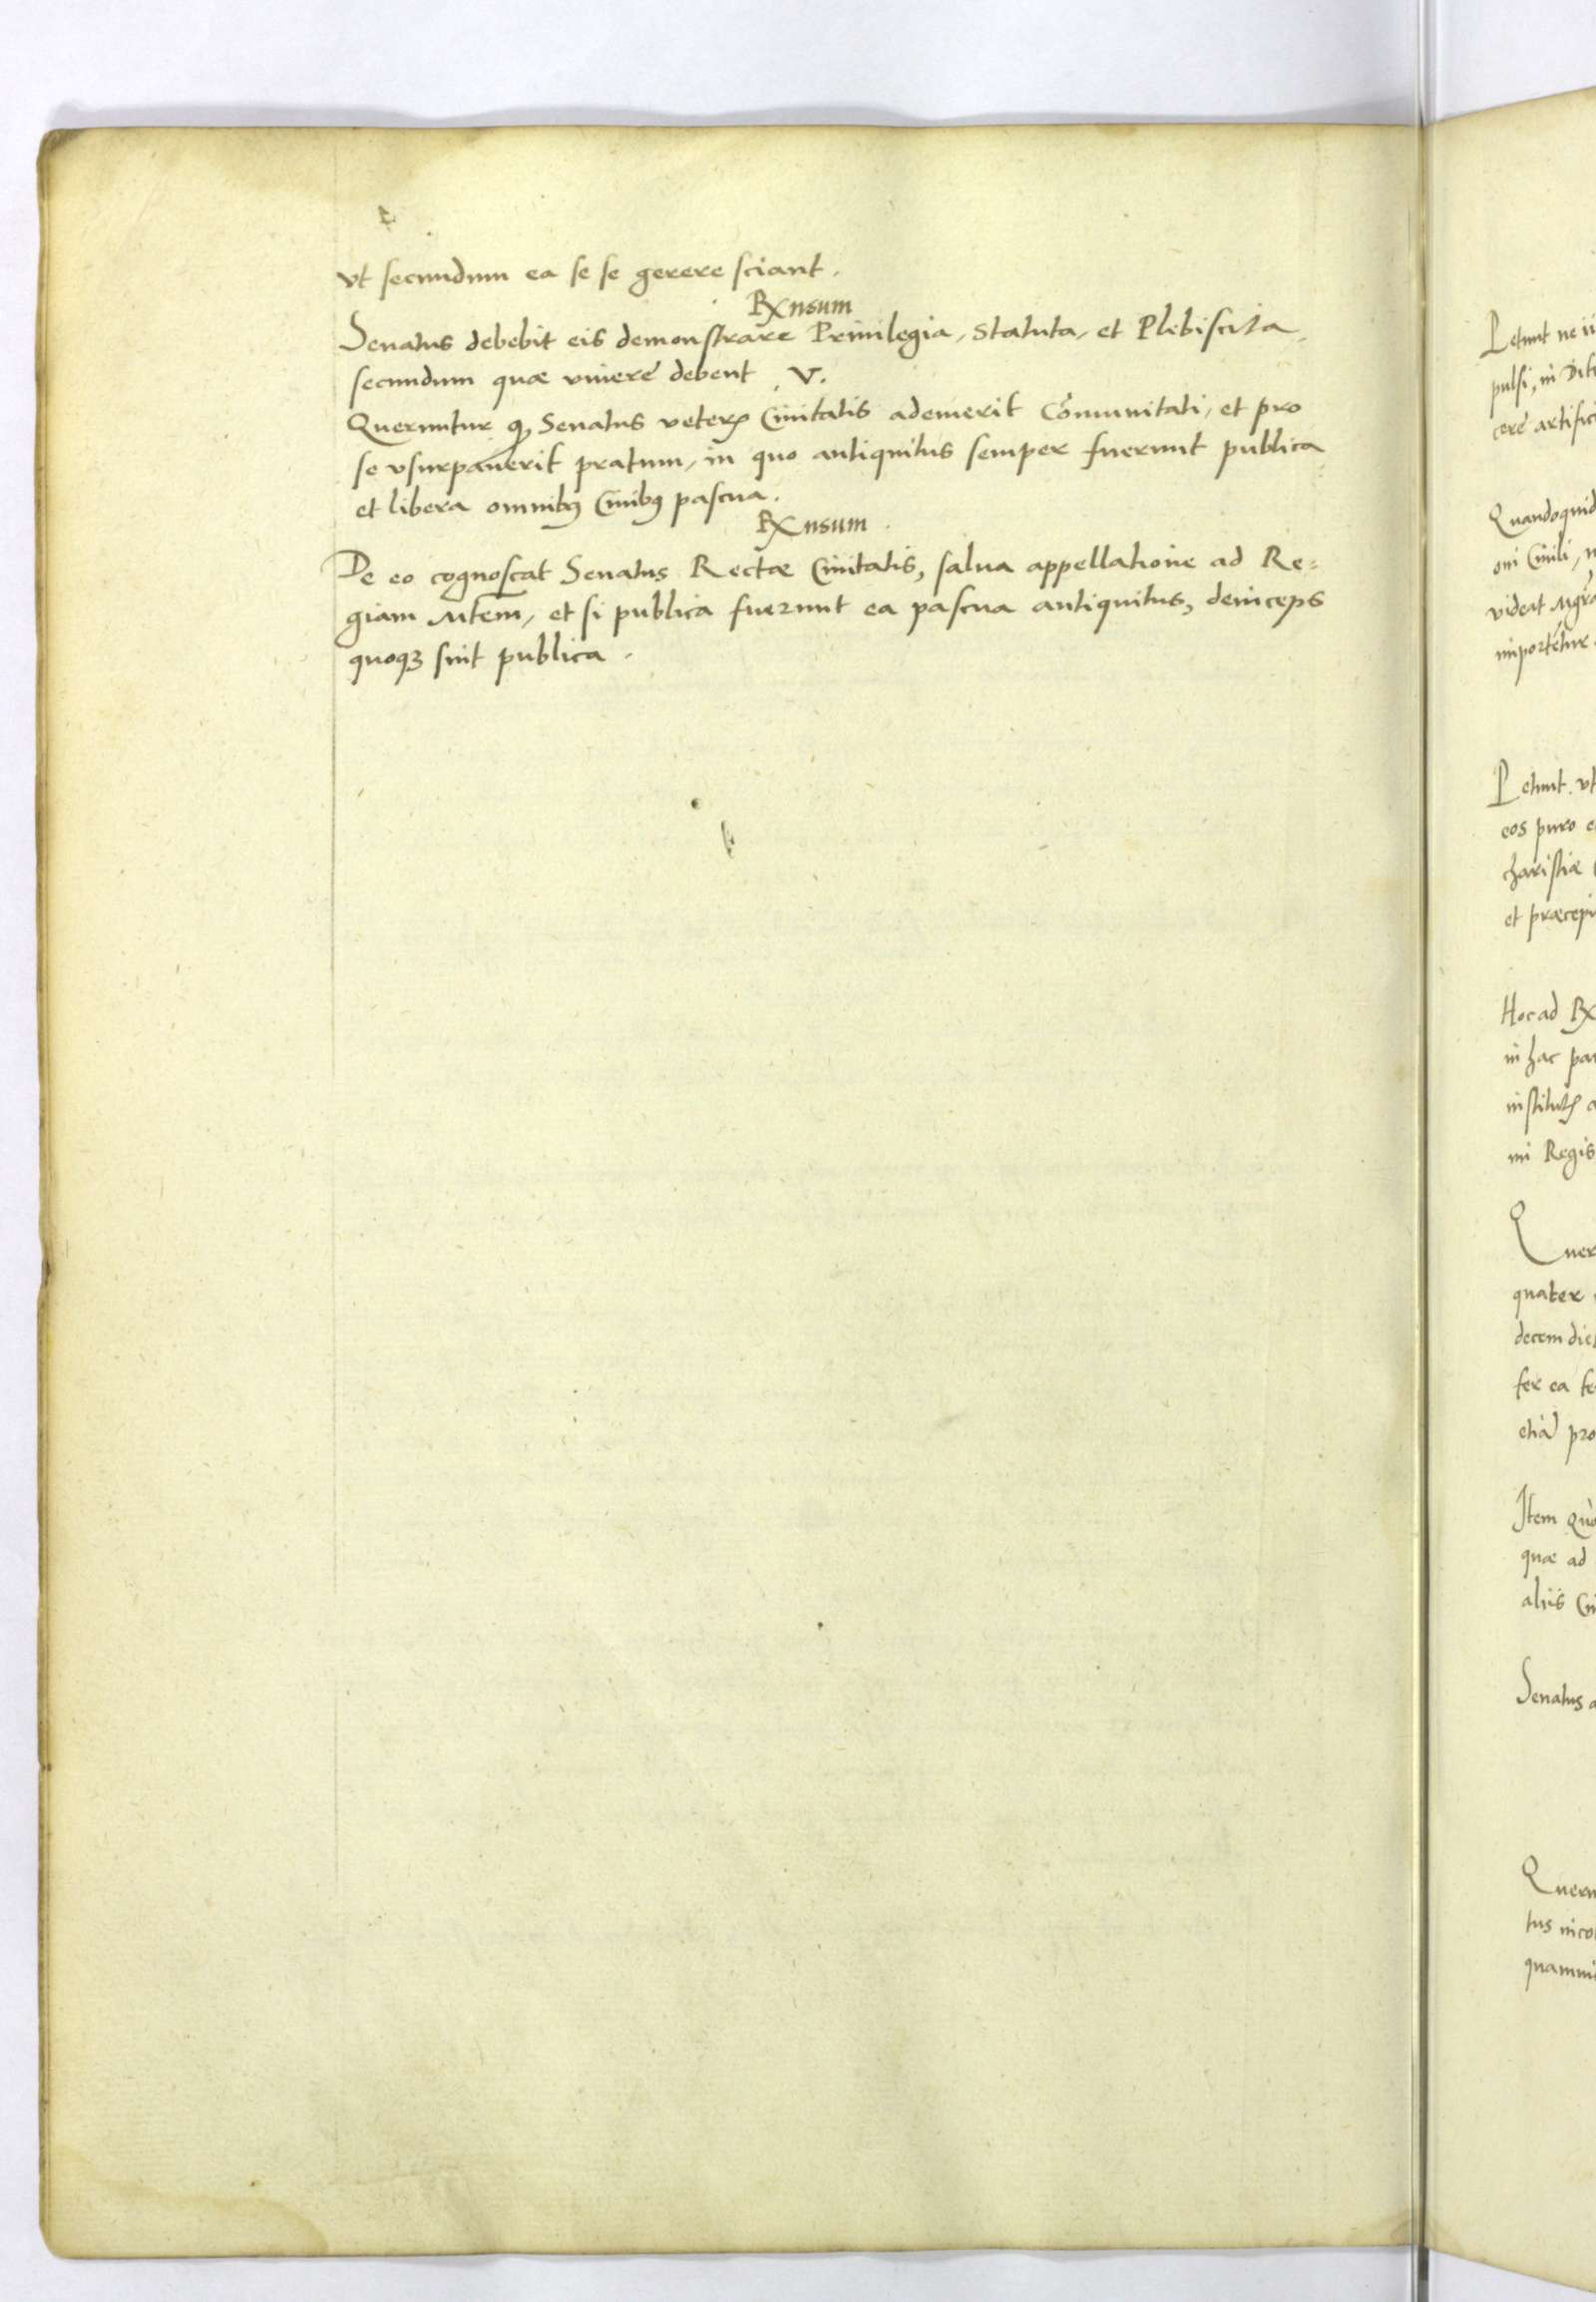 vt secundum ea se se gerere sciant.
Rxnsum
Senatus debebit eis demonstrare Priuilegia, Statuta, et Plebiscita
secundum quæ viuere debent. V.
Queruntur q Senatus veterꝭ Ciuitatis ademerit Comunitati, et pro
se vsurpauerit pratum, in quo antiquitus semper fuerunt publica
et libera omnibꝰ Ciuibꝰ pascua.
Rxnsum.
De eo cognoscat Senatus Rectæ Ciuitatis, salua appellatione ad Re=
giam Mtem, et si publica fuerunt ea pascua antiquitus, deinceps
quoqꝫ sint publica.
Petunt ne ii
pulsi, in Dit
cere artific
Quandoquid
oni Ciuili,
videat
importetur
Petunt. vt
eos puro
charistiæ
et præcep
Hoc ad Rx
in hac par
institutꝭ
mi Regis
Quer
quater
decem die
fer ea te
etiã pro
Item Quo
quæ ad
aliis Ci
Senatus a
Querun
tus inco
quamui